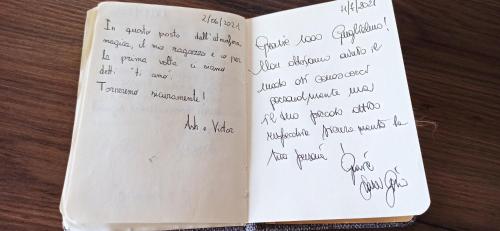 2/06/2021
In questo posto dall'atmosfera
magica, il mio ragazzo e io per
la prima volta ci siamo
detti "ti amo".
Torneremo sicuramente!
e Victor
Grazie 1000 Guglielmo!
Non abbiamo avuto il
modo di conoscerci
personalmente ma
il tuo piccolo attico
rispecchia sicuramente la
tua persona! Grazie